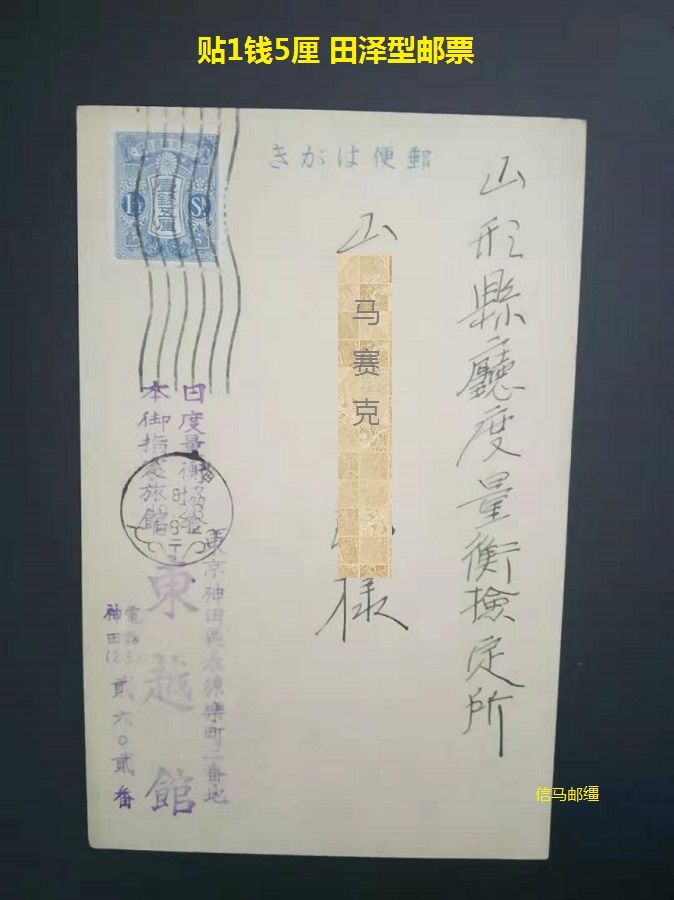 贴1钱5厘 田泽型邮票
きかは便郵
山形縣廳度量衡検定所
山
马赛克
様
日度量衡協会
本御指定旅館
東京神田區表猿楽町二番地
東越館
電話
神田(25)
貳六〇貳番
信马邮缰